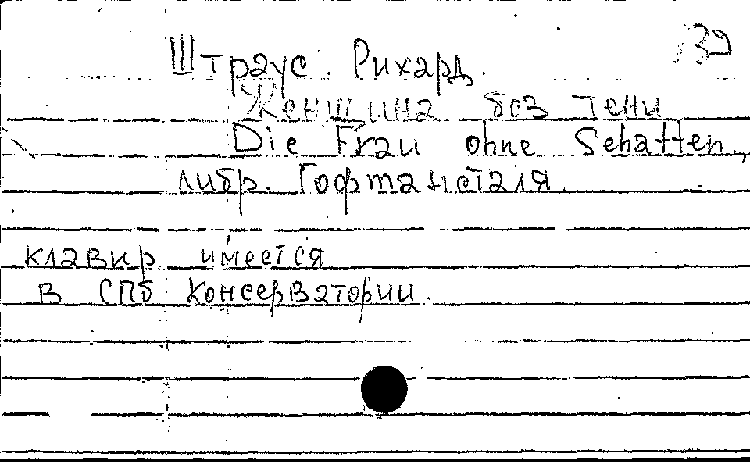 39
Штраус Рихард
Женщина без тени
Die Frau ohne Schatten,
либр. Гофмансталя.
клавир имеется
в СПб Консерватории.